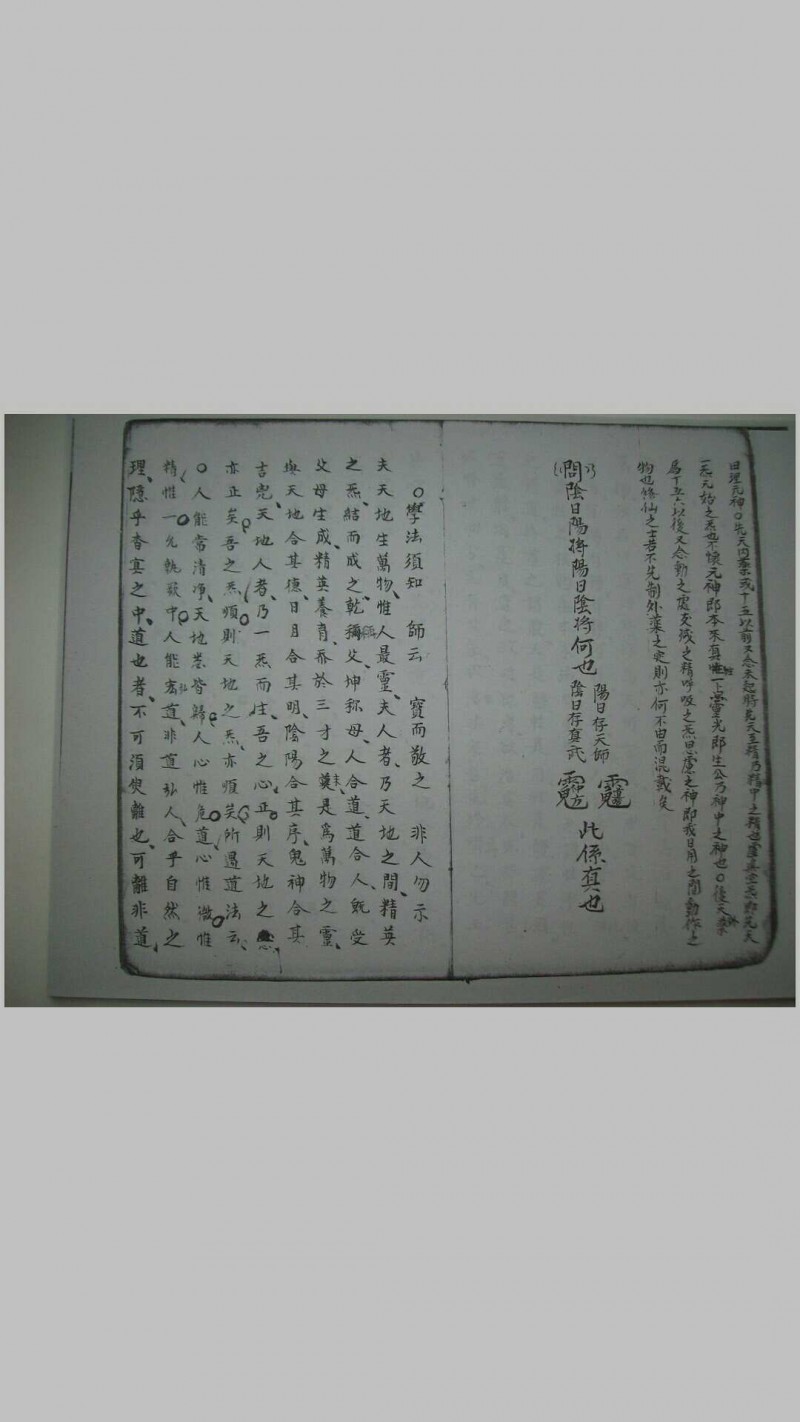 曰理元神○先天內藥或十五以前又念未起時先天至精乃精中之精也虛無空炁即元天
一炁元始之炁也不懷元神即本來真性一上靈光即生公乃神中之神也○後天外藥
為十五六以後又念動之處交洩之精呼吸之炁思慮之神即我日用之間動作之
物也修仙之士若不先制外藥之定則亦何不由而混哉矣
問陰日陽將陽日陰將何也 陽日存天師 陰日存真武
此係真也
○學法須知 師云 寶而敬之 非人勿示
夫天地生萬物、惟人最靈、夫人者、乃天地之間、精英
之炁、結而成之、乾稱父、坤称母、人合道、道合人、既受
父母生成、精英養育、忝於三才之末、是為萬物之靈、
與天地合其德、日月合其明、陰陽合其序、鬼神合其
吉兇、天地人者、乃一炁而生、吾之心正、則天地之心
亦正矣、吾之炁順、則天地之炁、亦順矣、所遇道法云、
○人能常清凈、天地悉皆歸、人心惟危、道心惟微、惟
精惟一、允執厥中、人能弘道、非道弘人、合乎自然之
理、隱乎杳冥之中、道也者、不可須臾離也、可離非道、